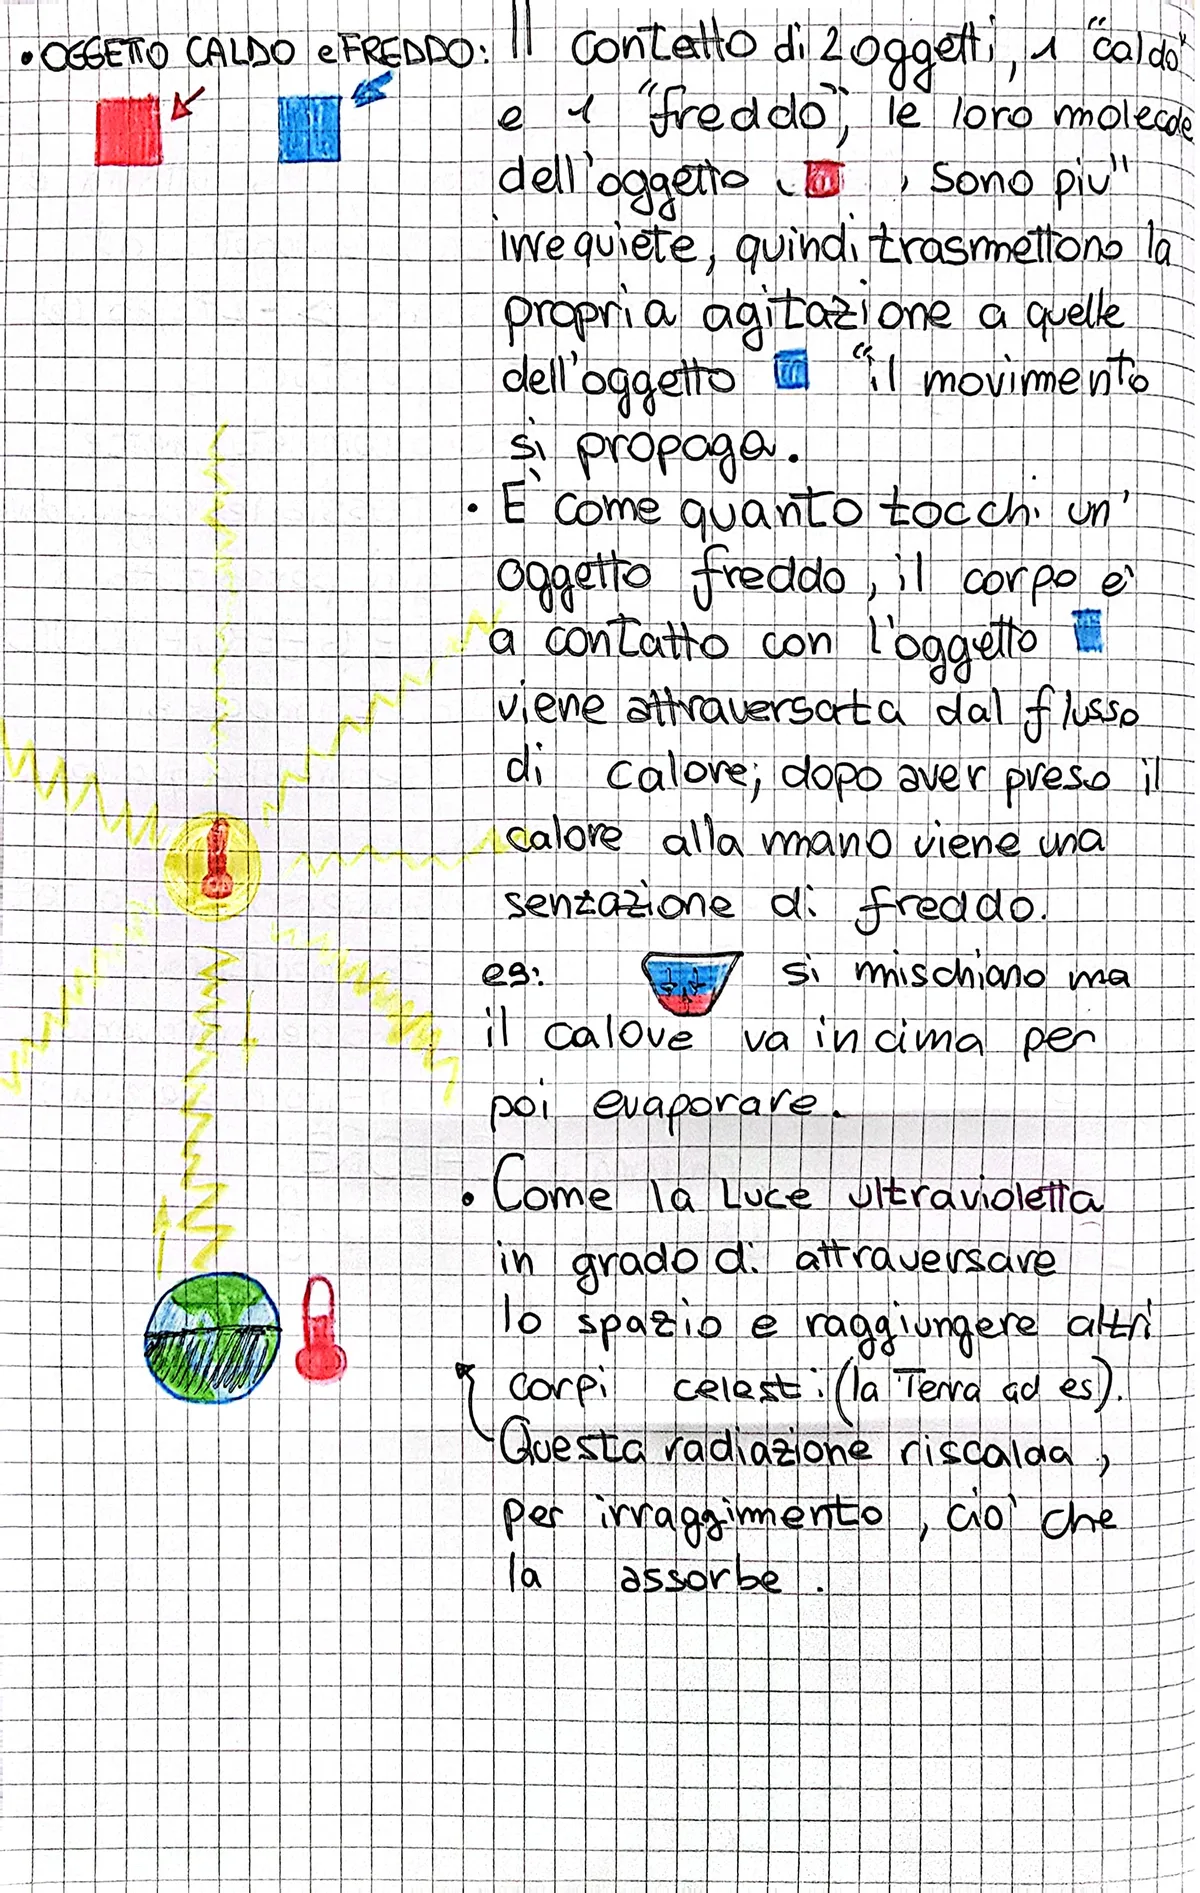 • OGGETTO CALDO e FREDDO: Il contatto di 2 oggetti, 1 "caldo"
e 1 "freddo", le loro molecole
dell'oggetto , sono piu"
irrequiete, quindi trasmettono la
propria agitazione a quelle
dell'oggetto "il movimento
si propaga.
• E' come quanto tocchi un'
oggetto freddo, il corpo e'
a contatto con l'oggetto
viene attraversata dal flusso
di calore; dopo aver preso il
calore alla mano viene una
sentazione di freddo.
es: si mischiano ma
il calore va in cima per
poi evaporare.
• Come la Luce ultravioletta
in grado di attraversare
lo spazio e raggiungere altri
corpi celesti (la Terra ad es).
Questa radiazione riscalda,
per irraggimento, cio' che
la assorbe.